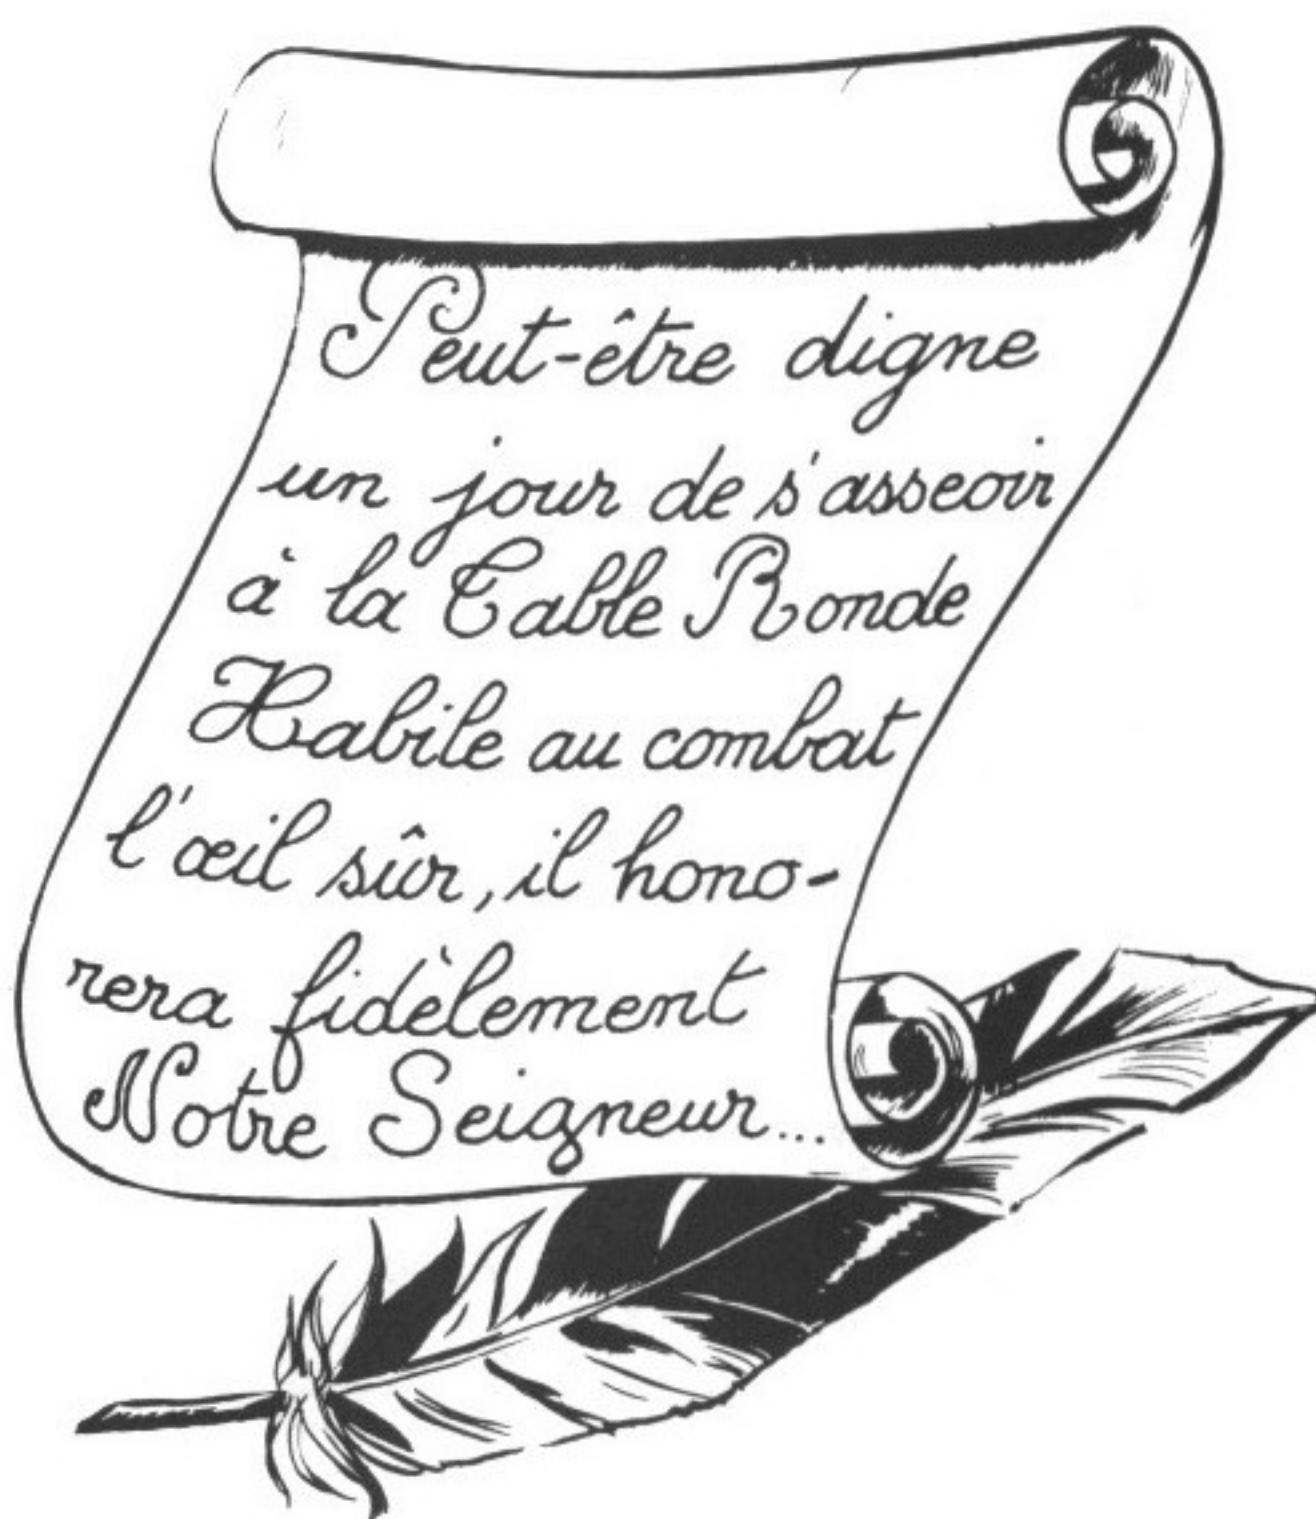 Peut-être digne
un jour de s'asseoir
à la Table Ronde
Habile au combat
l'œil sûr, il hono-
rera fidèlement
Notre Seigneur...